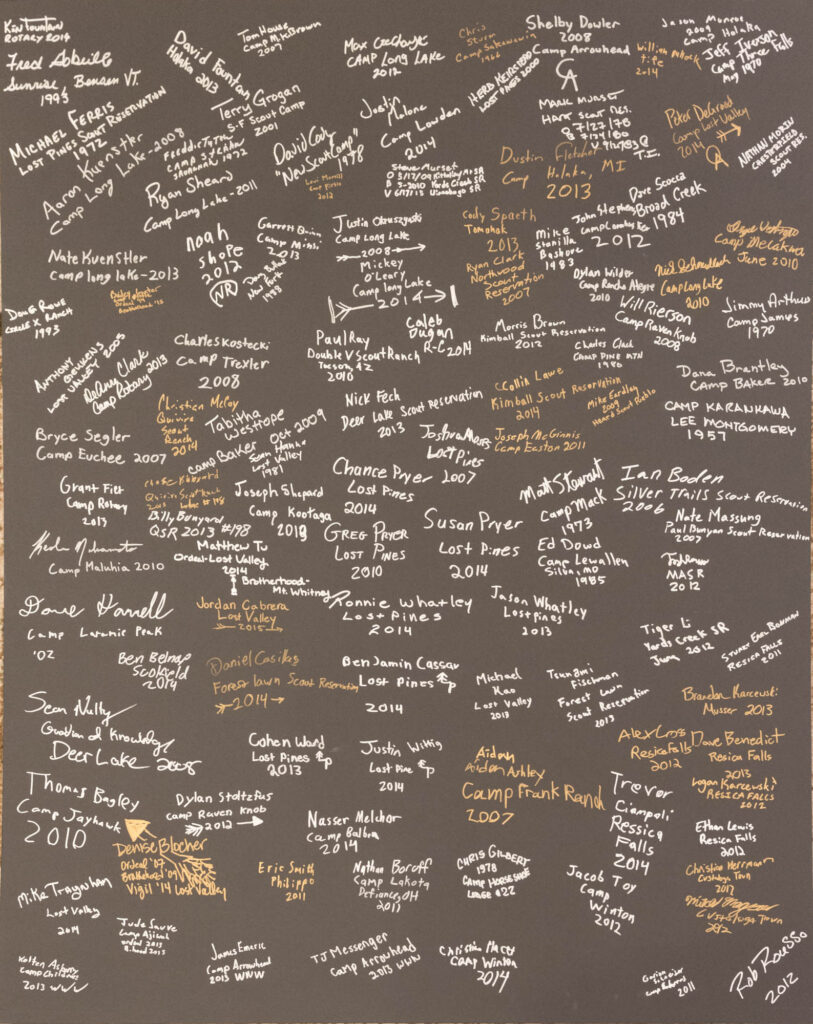 Ken Fountain
ROTARY 2014
Tom House
Camp McKBrown
2007
David Fountain
Holaka 2013
Max
CAMP LONG LAKE
2012
Chris
Sturm
1966
Shelby Dowler
2008
Camp Arrowhead
William
2014
Jason Monroe
2009
Camp Holaka
Jeff Iverson
Camp Three Falls
May 1970
Fred
Sunrise, Benson VT.
1993
MICHAEL FERRIS
LOST PINES SCOUT RESERVATION
1972
Terry Grogan
S-F Scout Camp
2001
Justin
Malone
Camp Lowden
2014
HERB
LOST PINES 2000
MARK MURST
HART SCOUT RES.
7/27/78
Peter DeGrood
Camp Lost Valley
2014
NATHAN MORIN
CHESTERFIELD
SCOUT RES.
2004
Aaron Kuenstler
Camp Long Lake-2008
SAVANNAH, 1972
David Cook
"New Scout Camp"
1978
Levi
2012
Steve Murset
Dustin Fletcher
Camp Holaka, MI
2013
Ryan Sheard
Camp Long Lake-2011
Dave Scocca
Broad Creek
1984
Nate Kuenstler
Camp long lake-2013
noah
shope
2012
Garrett Quinn
2013
New York
1983
Justin
Camp Long Lake
2008
Mickey
O'Leary
Camp long Lake
2014
Cody Spaeth
Tomahok
2013
Ryan Clark
Northwood
Scout
Reservation
2007
Mike
Stanilla
Bashore
1983
John Stephens
2012
Camp McCakwa
June 2010
Dylan Wilder
Camp Rancho Alegre
2010
Camp Long Lake
2010
Will Rierson
Camp Raven Knob
2008
Jimmy Arthur
Camp James
1970
Doug Rowe
1993
ANTHONY
LOST VALLEY 2005
Clark
Camp Rotary 2013
Charles Kostecki
Camp Trexler
2008
Paul Ray
Double V Scout Ranch
Tucson, AZ
2010
Caleb
Dugan
R-C 2014
Morris Brown
Kimball Scout Reservation
2012
Charles Clark
CAMP PINE MTN
1986
Dana Brantley
CAMP BAKER 2010
Christian McCoy
Quivira
Scout
Ranch
2014
Tabitha
Westrope
CAMP BAKER Oct 2009
Nick Fech
Deer Lake Scout Reservation
2013
Collin Lawe
Kimball Scout Reservation
2014
Mike Eardley
2009
Heard Scout Pueblo
CAMP KARANKAWA
LEE MONTGOMERY
1957
Bryce Segler
Camp Euchee 2007
Sean
Lost Valley
1981
Joshua Moss
Lost Pines
2007
Joseph McGinnis
Camp Easton 2011
Grant Fiet
Camp Rotary
2013
Chase Bunyard
Quivira Scout Ranch
2013 Lodge #198
Billy Bunyard
QSR 2013 #198
Joseph Shepard
Camp Kootaga
2013
Chance Pryer
Lost Pines
2014
Matt Stewart
Camp Mack
1973
Ian Boden
Silver Trails Scout Reservation
2006
Nate Massung
Paul Bunyan Scout Reservation
2007
Camp Maluhia 2010
Matthew Tu
Ordeal-Lost Valley
2014
Brotherhood-
Mt. Whitney
GREG PRYER
LOST PINES
2010
Susan Pryer
Lost Pines
2014
Ed Dowd
Camp Lewallen
Silva, MO
1985
MASR
2012
Dave Harrell
Camp Laramie Peak
'02
Jordan Cabrera
Lost Valley
2015
Ronnie Whatley
Lost Pines
2014
Jason Whatley
Lost pines
2013
Tiger Li
Yards Creek SR
June 2012
Stuart Earl Bowman
Resica Falls
2011
Ben Belnap
Scofield
2014
Daniel Casillas
Forest Lawn Scout Reservation
2014
Benjamin Cassar
Lost Pines
2014
Michael
Kao
Lost Valley
2013
Tsungmi
Fischman
Forest Lawn
Scout Reservation
2013
Brandon Karcewski
Musser 2013
Sean Nulty
Guardian of Knowledge
Deer Lake 2008
Cohen Ward
Lost Pines
2013
Justin Wittig
Lost Pine
2014
Aidan
Aidan Ashley
Camp Frank Rand
2007
Alex Cros
Resica Falls
2012
Dave Benedict
Resica Falls
2013
Logan Karcewski
RESICA FALLS
2012
Thomas Bagley
Camp Jayhawk
2010
Dylan Stoltzfus
Camp Raven Knob
2012
Nasser Melchor
Camp Balboa
2014
Trevor
Ciampoli
Ressica
Falls
2014
Ethan Lewis
Resica Falls
2012
Denise Blocher
Ordeal '07
Brotherhood '09
Vigil '14 Lost Valley
Eric Smith
Philippo
2011
Nathan Boroff
Camp Lakota
Defiance, OH
2011
CHRIS GILBERT
1978
CAMP HORSESHOE
LODGE #22
Jacob Toy
Camp
Winton
2012
Christian Herrman
2012
Mike Traynham
Lost Valley
2014
Jude Sauve
Camp
ordeal 2013
B.hood 2013
James Emeric
Camp Arrowhead
2013 WWW
TJ Messenger
Camp Arrowhead
2013 WWW
Christina
Camp Winton
2014
Kolten Asbury
Camp Childress
2013 WWW
2011
Rob Rousso
2012